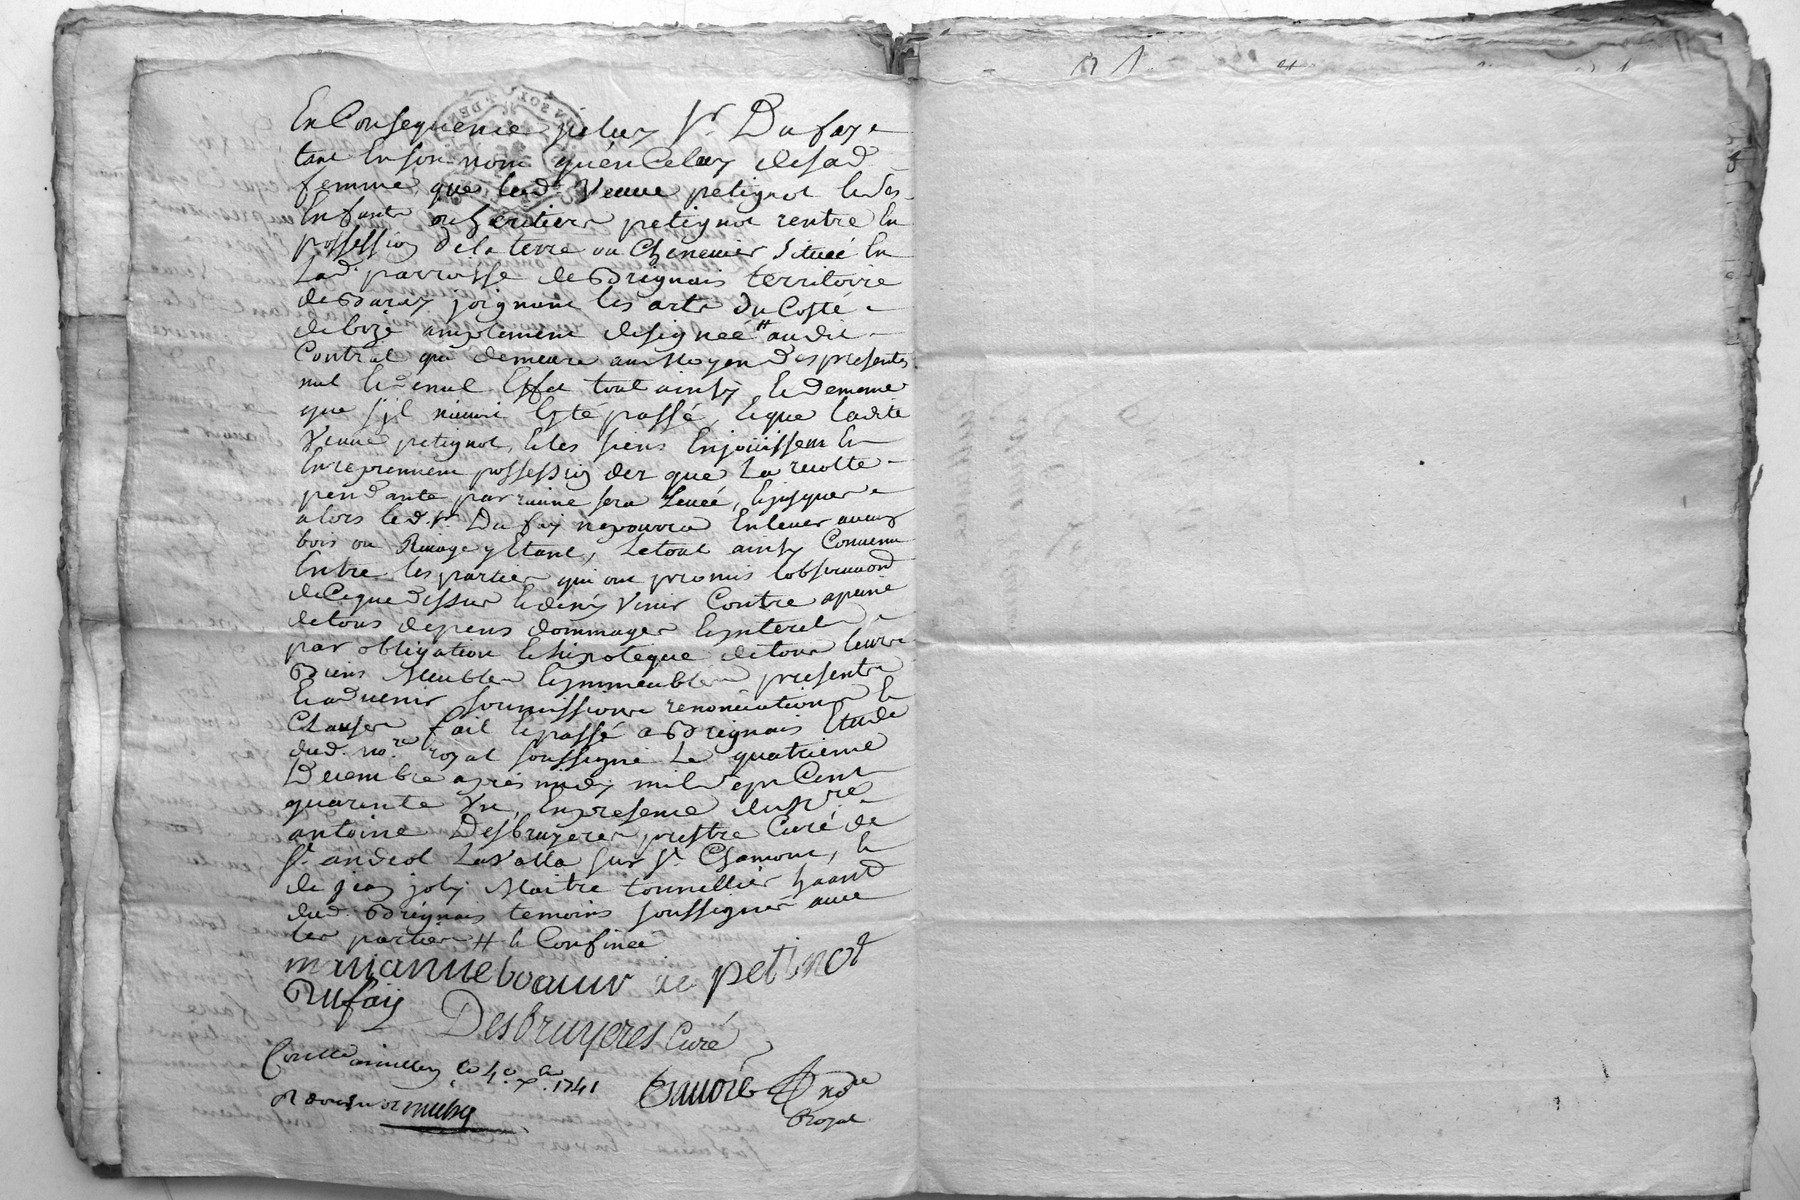 En Consequence jceluy Sr. Dufay
tant En son nom qu'en Celuy de sad.
femme que lad. Veuve petignot les
Enfants ou heritiers petignot rentre En
possession de la terre ou Chenevier Situeé En
Lad. parroisse de Brignais territoire
de Barray joignant les arts du Costé
de bize amplement designeé # audit
Contrat qui demeure au Moyen des presentes
nul et de nul Effet tout ainsy et de meme
que s'jl n'avoit Esté passé, et que ladite
Veuve petignot, et les siens En joüissent En
En reprennent possession der que La recolte
pendante par racine sera Leveé, et jusques
alors led. Sr. Dufay ne pourra Enlever aucun
bois ou y Etant, Le tout ainsy Convenu
Entre les parties qui ont promis l'observaon
de Ce que dessus et de n'y Venir Contre apeine
de tous depens dommages et jnterets
par obligation et hipoteque de tous leurs
Biens Meubles et jmmeubles presents
et avenir soumissions renonciations et
Clauses fait et passé a Brignais Etude
dud. no.re royal soussigné Le quatrieme
Decembre après midy mil sept Cent
quarente Un, En presence de Mre
antoine Desbruyeres prestre Curé de
St. andeol Lavalla sur St. Chamont, et
de jean joly Maitre tonnellier haant
dud. Brignais temoins soussignés avec
les parties # et Confineé
marianne petinot
Dufay
Desbruyeres Curé
le 4e. xbre. 1741
nore
Royal